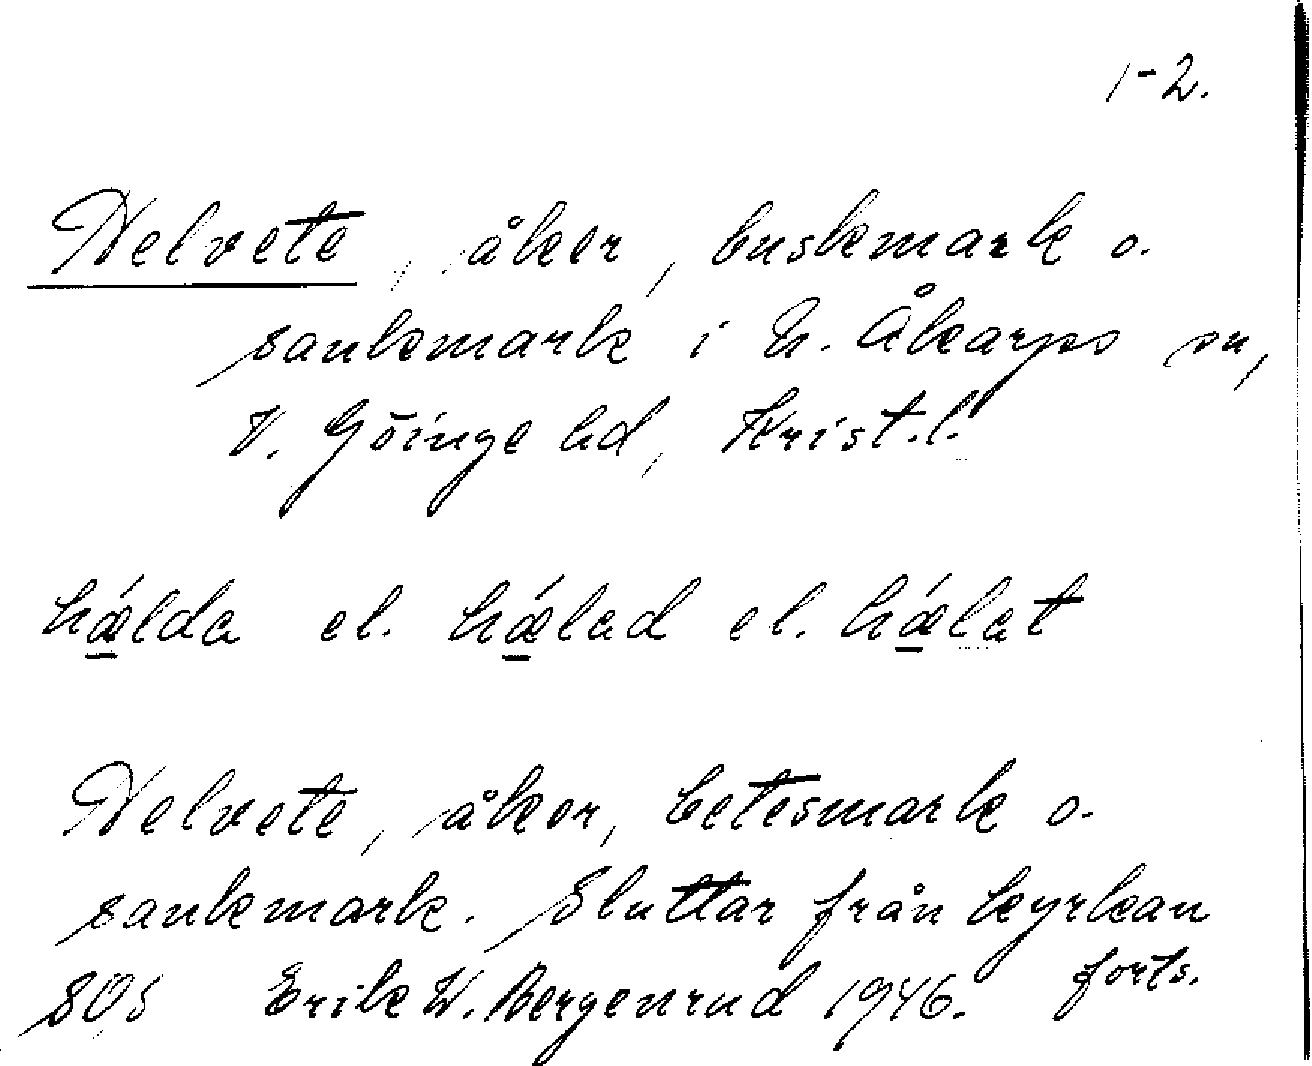 1-2.
Helvete, åker, buskmark o.
sankmark i N. Åkarps sn,
V. Göinge hd, Krist.l.
hǽlda el. hǽlad el. hǽlat
Helvete, åker, betesmark o.
sankmark. Sluttar från kyrkan
SOS Erik W. Bergenrud 1946. forts.